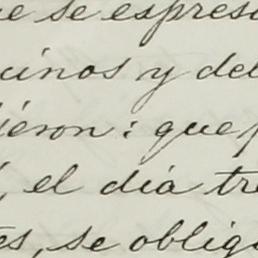 ue se expresa
cinos y del
jeron: que p
, el día tre
tes, se obliga